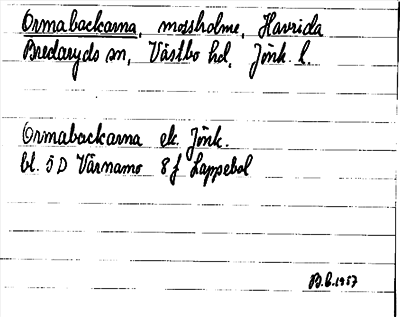 Ormabackarna, mossholme, Havrida
Bredaryds sn, Västbo hd, Jönk. l.
Ormabackarna ek. Jönk.
bl. 5 D Värnamo 8 f Lappebol
B.L. 1957